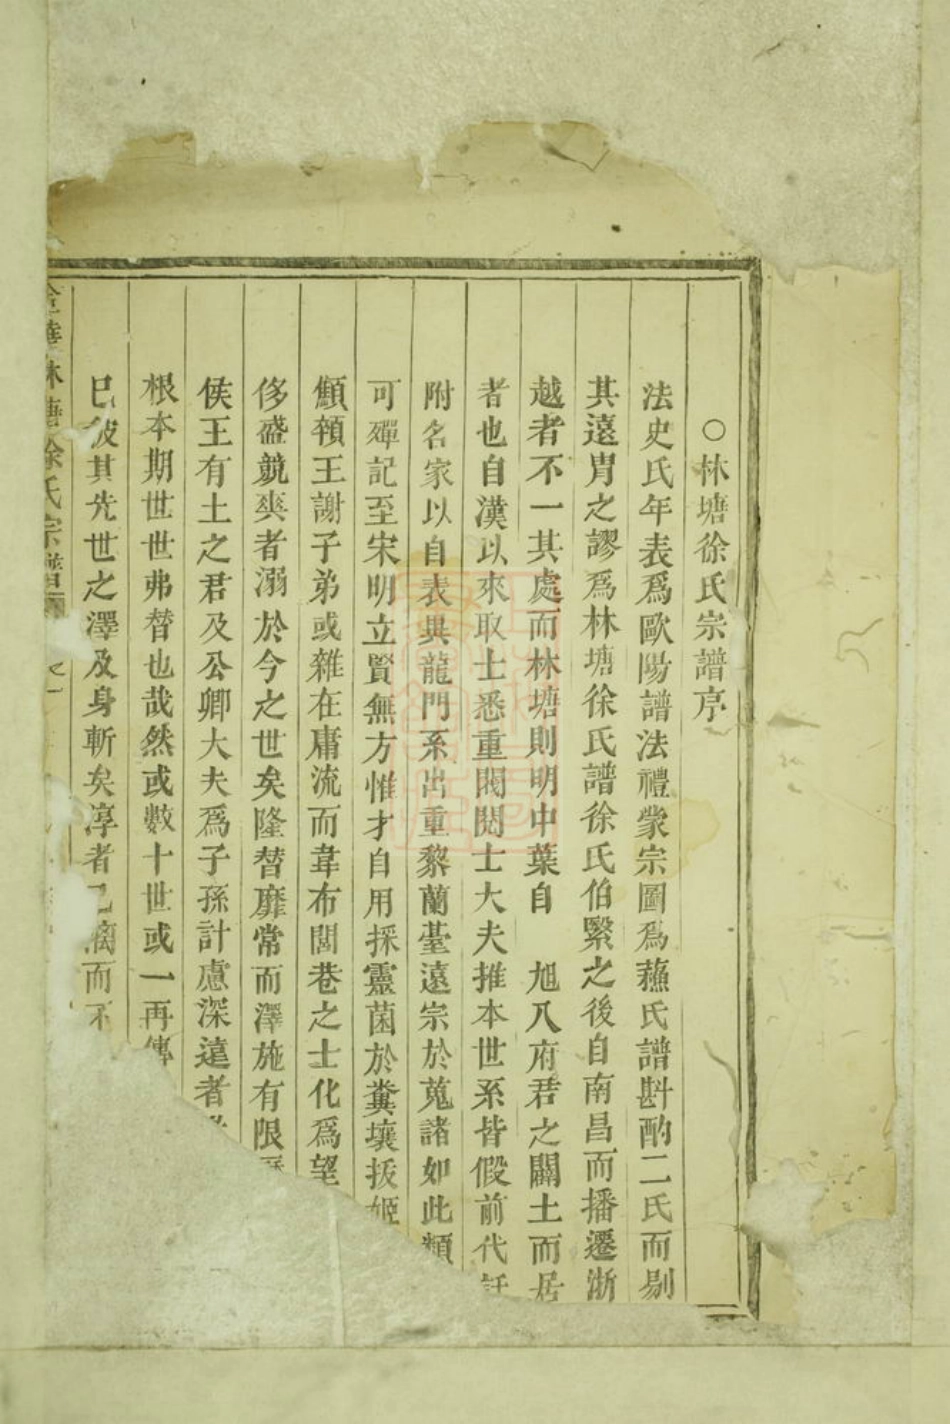 ○林塘徐氏宗譜序
法史氏年表爲歐陽譜法禮家宗圖爲蘓氏譜斟酌二氏而剔
其遠胄之謬爲林塘徐氏譜徐氏伯繄之後自南昌而播遷浙
越者不一其處而林塘則明中葉自 旭八府君之闢土而居
者也自漢以來取士悉重閥閱士大夫推本世系皆假前代
附名家以自表異龍門系出重黎蘭臺遠宗於蒐諸如此類
可殫記至宋明立賢無方惟才自用採靈菌於糞壤拔姬
顦顇王謝子弟或雜在庸流而韋布閭巷之士化爲望
侈盛競爽者溺於今之世矣隆替靡常而澤施有限
侯王有土之君及公卿大夫爲子孫計慮深遠者
根本期世世弗替也哉然或數十世或一再傳
其先世之澤及身斬矣淳者已漓而不
林塘徐氏宗譜